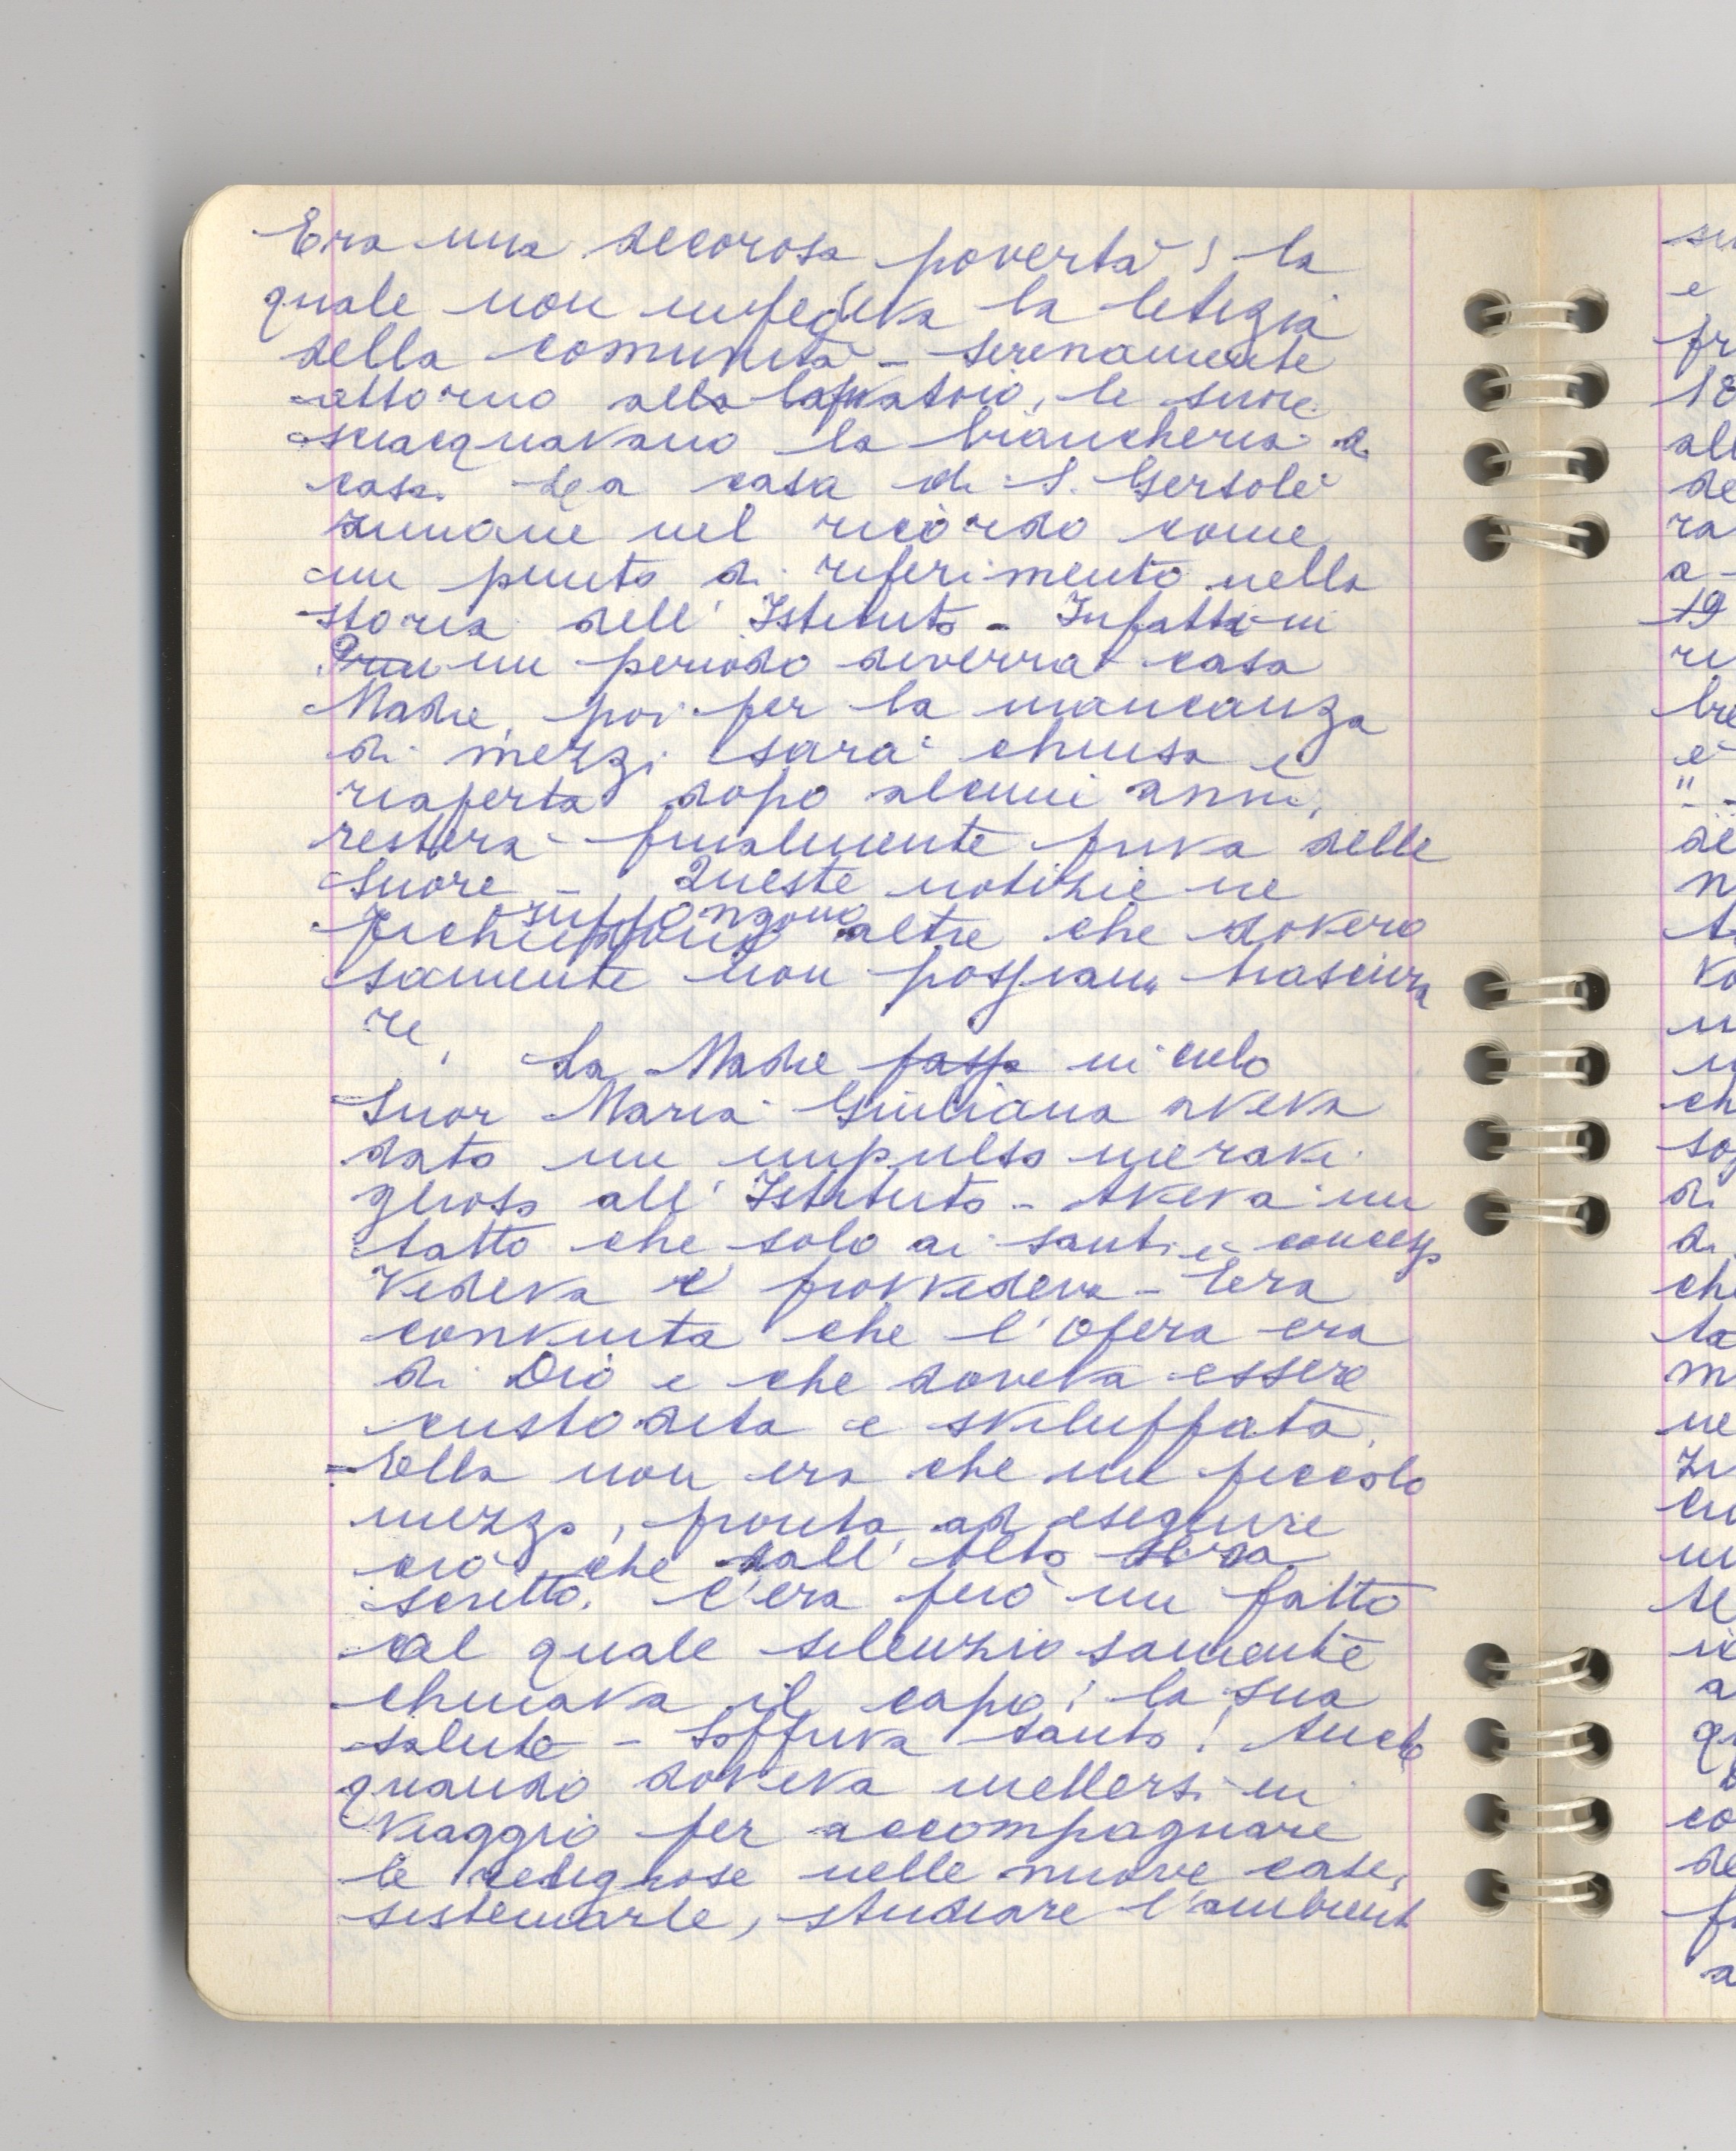 Era una decorosa povertà! la
quale non impediva la letizia
della comunità - serenamente
attorno alla lavatoio, le suore
sciacquavano la biancheria di
casa. La casa di S. Gersolè
rimane nel ricordo come
un punto di riferimento nella
storia dell'Istituto - Infatti in
un periodo diverrà casa
Madre, poi per la mancanza
di mezzi sarà chiusa e
riaperta dopo alcuni anni,
resterà finalmente priva delle
Suore - Queste notizie ne
raffongono altre che dovero
samente non possiamo trascura
re,
La Madre passa in cielo
Suor Maria Giuliana aveva
dato un impulso meravi
glioso all'Istituto - Aveva un
tatto che solo ai santi è concesso
Vedeva e provvedeva - Era
convinta che l'Opera era
di Dio e che doveva essere
custodita e sviluppata.
Ella non era che un piccolo
mezzo, pronta ad eseguire
ciò che dall'Alto
scritto. C'era però un fatto
al quale silenziosamente
chinava il capo: la sua
salute - Soffriva tanto! Anche
quando doveva mettersi in
viaggio per accompagnare
le religiose nelle nuove case,
sistemarle, studiare l'ambient